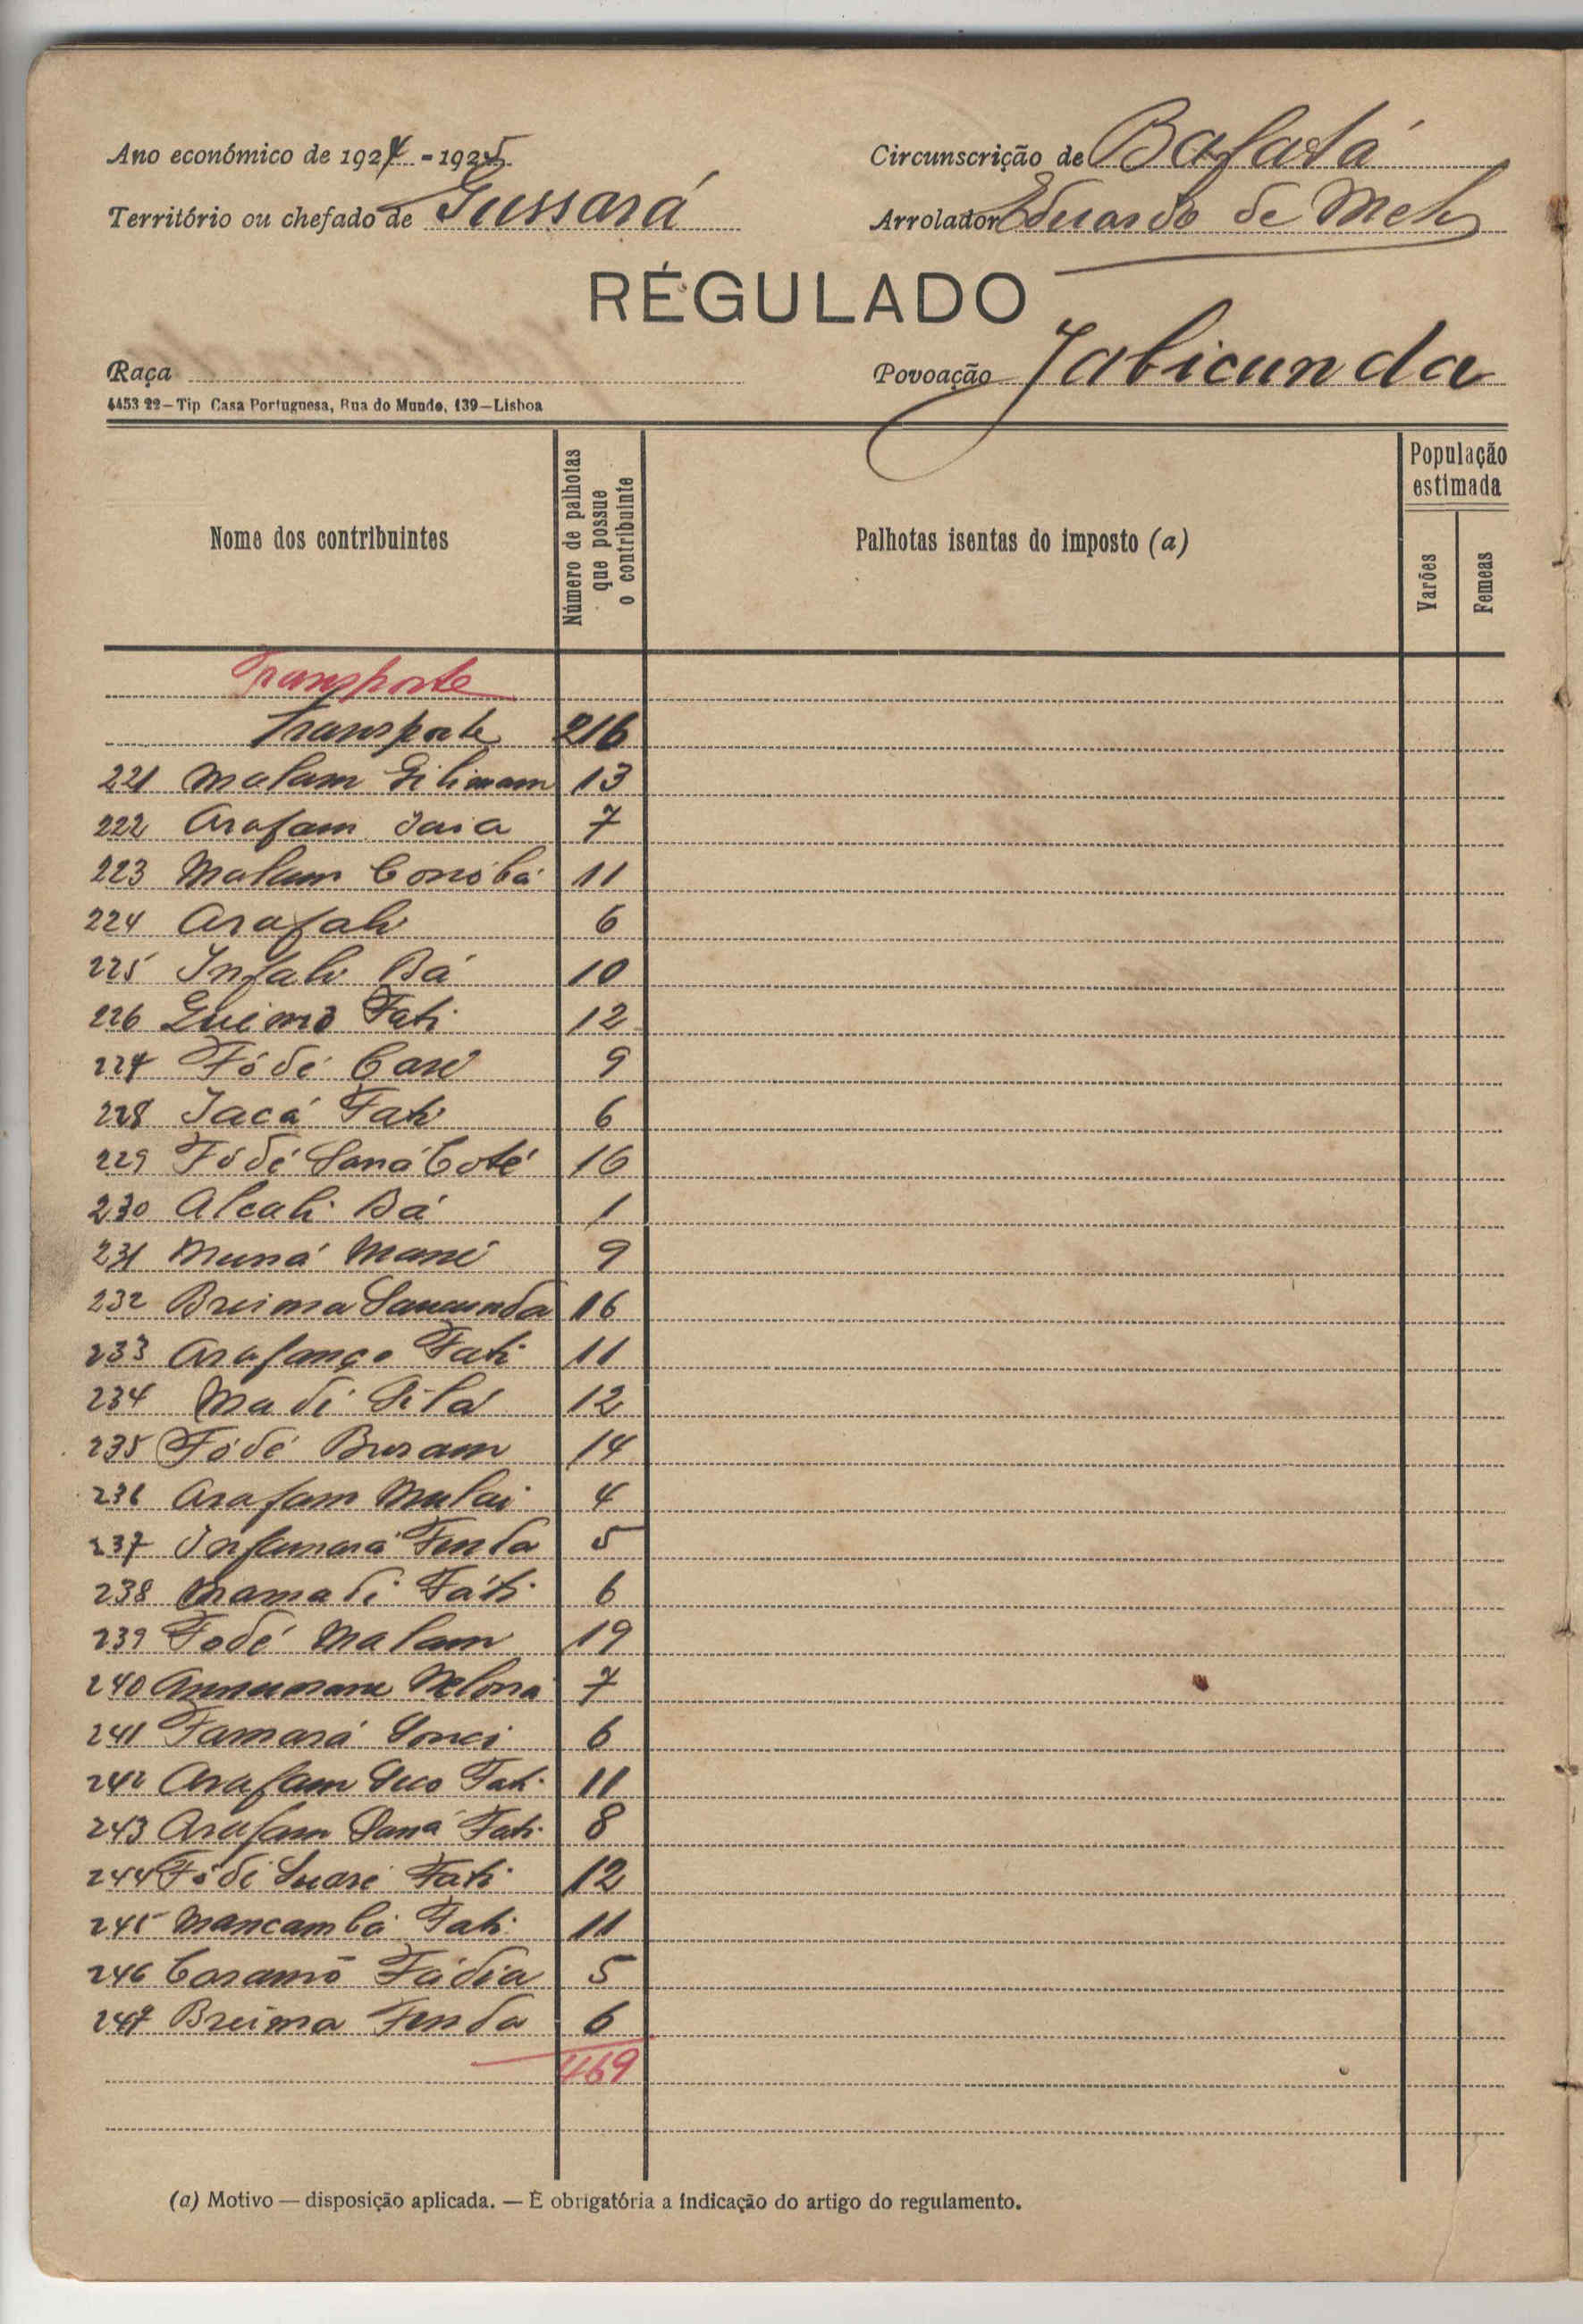 Ano económico de 1924 - 1925
Circunscrição de Bafatá
Território ou chefado de Gussará
Arrolador Eduardo de Melo
RÉGULADO
Raça
Povoação Jabicunda
4453 22—Tip Casa Portuguesa, Rua do Mundo, 139—Lisboa
Nome dos contribuintes
Número de palhotas que possue o contribuinte
Palhotas isentas do imposto (a)
População estimada
Varões
Femeas
Transporte
Transporte 216
221 Malam Gilimam 13
222 Arafam Jaia 7
223 Malam Conóbá 11
224 Arafali 6
225 Infali Bá 10
226 Quemó Fati 12
227 Fódé Caré 9
228 Jacá Fati 6
229 Fódé Saná Coté 16
230 Alcali Bá 1
231 Muná Mané 9
232 Breima Saucunda 16
233 Arafanço Fati 11
234 Madi Silá 12
235 Fódé Buram 14
236 Arafam Malai 4
237 Infamará Fenda 5
238 Mamadi Fáti 6
239 Fodé Malam 19
240 7
241 Famará Sonci 6
242 Arafam Fati 11
243 Arafam Saná Fati 8
244 Fódé Suaré Fati 12
245 Mancambá Fati 11
246 Caramó Fádia 5
247 Breima Fenda 6
469
(a) Motivo — disposição aplicada. — É obrigatória a indicação do artigo do regulamento.